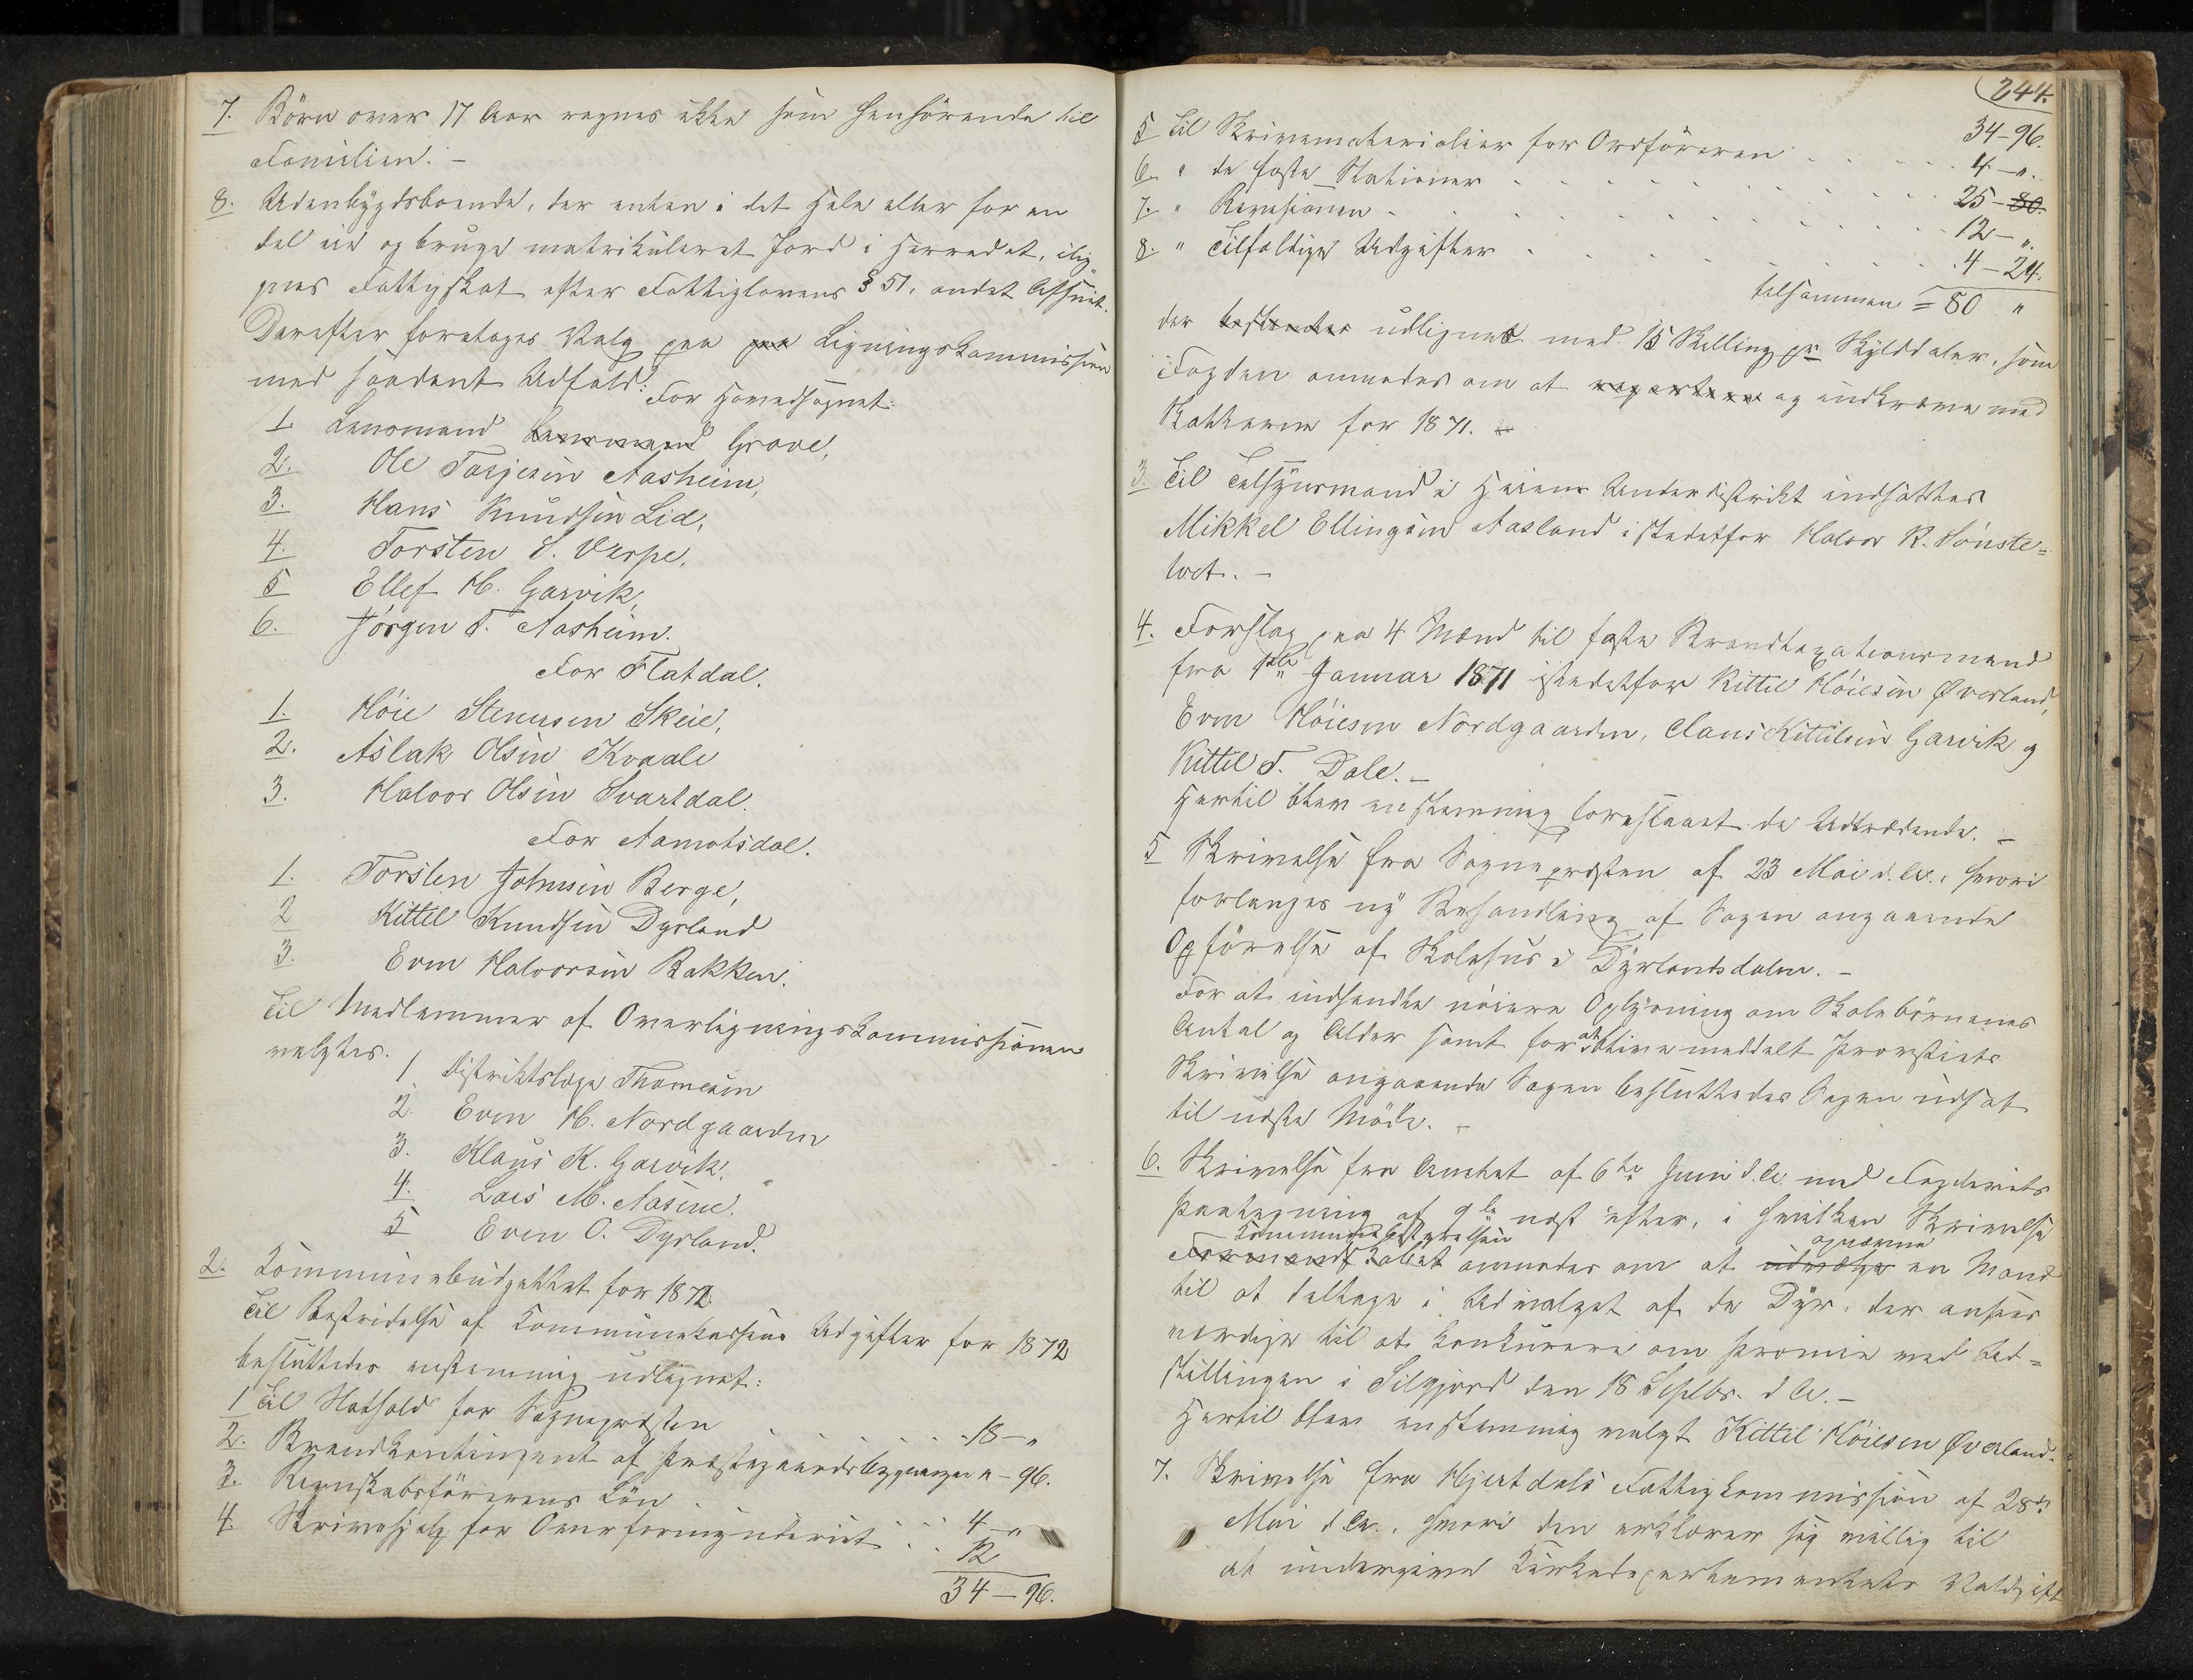 7. Börn over 17 Aar regnes ikke som henhörende til
Familien. –
8. Udenbygdsboende, der enten i det Hele eller for en
Del eie og bruge matrikuleret Jord i Herredet, ilig-
nes Fattigskat efter Fattiglovens § 51, andet Afsnit.
Derefter foretoges Valg paa paa Ligningskommission
med saadant Udfald:
For Hovedsognet:
1. Lensmand Lensmand Grave,
2. Ole Tarjesøn Aasheim,
3. Hans Knudsøn Lid,
4. Torsten S. Verpe,
5 Ellef H. Garvik,
6. Jörgen T. Aasheim.
For Flatdal.
1. Höie Stenusen Skeie,
2. Aslak Olsøn Kvaale
3. Halvor Olsøn Svartdal.
For Aamotsdal.
1. Torsten Johnsøn Berge,
2 Kittil Knudsøn Dyrland
3. Even Halvorsøn Bakken.
Til Medlemmer af Overligningskommissionen
valgtes.
1 Distriktslæge Thomesøn
2. Even H. Nordgaarden
3. Klaus K. Garvik,
4. Lars M. Aasine.
5 Even O. Dyrland.
2. Kommunebudgettet for 1872.
Til Bestridelse af Kommunekassens Udgifter for 1872
besluttedes enstemmig udlignet:
1 Til Hothold for Sognepræsten . . . . 18 – "
2. Brandkontingent af Præstegaardsbygninger " – 96.
3. Regnskabsförerens Lön . . . 4 – "
4. Skrivehjelp for Overformynderiet . . . 12
34 – 96.
244.
34–96.
5 Til Skrivematerialier for Ordföreren . . . . . 4 – ".
6. " de faste Stationer . . . . . . . 25 – 80.
7. " Revisionen . . . . . . . . 12 – ".
8. " Tilfældige Udgifter . . . . . . 4 – 24.
tilsammen = 80 "
der besluttes udlignet med 15 Skilling pr Skylddaler, som
Fogden anmodes om at repartere og indkræve med
Skatterne for 1871.
3. Til Tilsynsmand i Heiens Underdistrikt indsattes
Mikkel Ellingsøn Aasland i stedetfor Halvor R. Sönste-
tvet. –
4. Forslag paa 4 Mænd til faste Brandtaxationsmænd
fra 1ste Januar 1871 istedetfor Kittil Höiesøn Øverland,
Even Höiesøn Nordgaarden, Claus Kittilsøn Garvik og
Kittil T. Dale. –
Hertil blev enstemmig foreslaaet de Udtrædende. –
5 Skrivelse fra Sognepræsten af 23 Mai d. A., hvori
forlanges ny Behandling af Sagen angaaende
Opförelse af Skolehus i Dyrlandsdalen. –
For at indhendte nöiere Oplysning om Skolebörnenes
Antal og Alder samt for at blive meddelt Provstiets
Skrivelse angaaende Sagen besluttedes Sagen udsat
til næste Möde. –
6. Skrivelse fra Amtet af 6te Juni d. A. med Fogderiets
Paategning af 9de næst efter, i hvilken Skrivelse
Kommunebestyrelsen opnævne
Formandskabet anmodes om at udvælge en Mand
til at deltage i Udvalget af de Dyr, der ansees
værdige til at konkurere om Præmie ved Ud-
stillingen i Siljord den 18 Septbr. d A. –
Hertil blev enstemmig valgt Kittil Höiesen Øverland.
7. Skrivelse fra Hjertdals Fattigkommission af 28de
Mai d A., hvori den erklærer sig villig til
at undergive Kirkedepartementets Voldgift